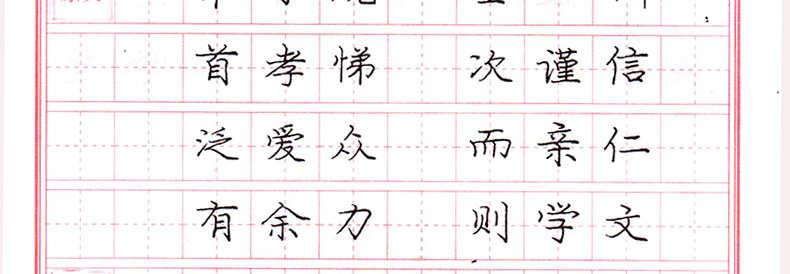 首孝悌 次谨信
泛爱众 而亲仁
有余力 则学文